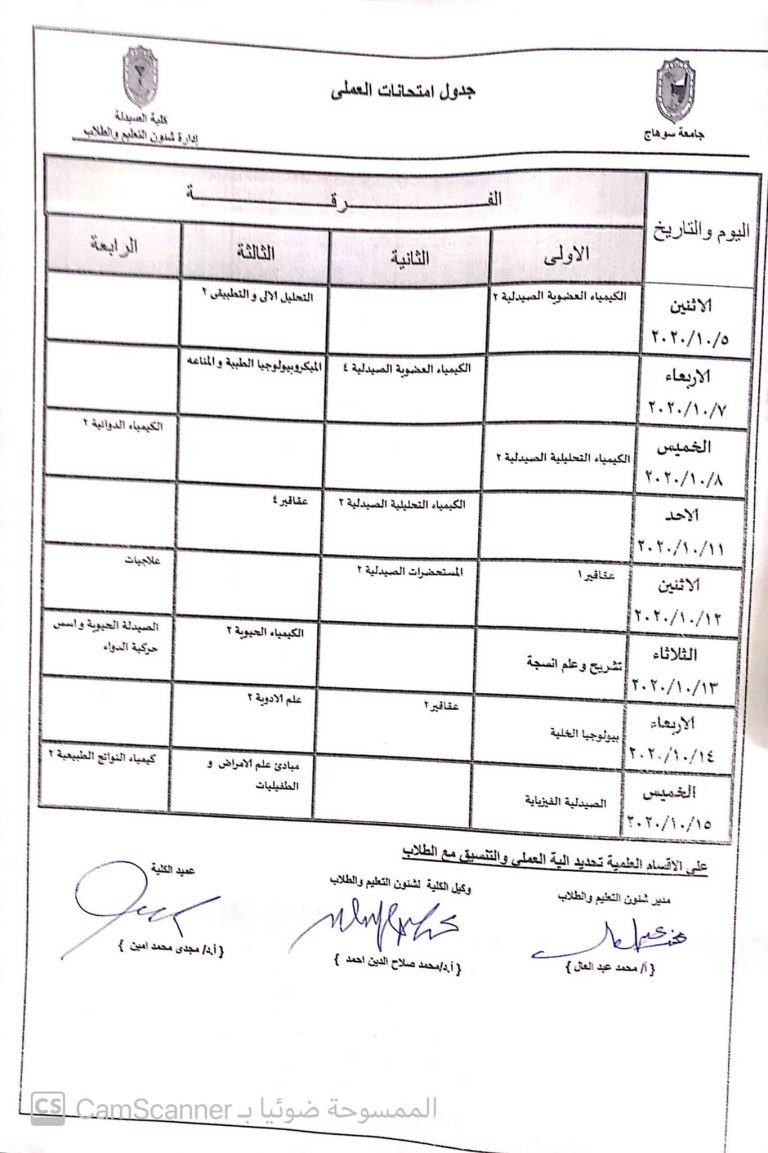 جدول امتحانات العملى
جامعة سوهاج
كلية الصيدلة
إدارة شئون التعليم والطلاب
اليوم والتاريخ
الفـــــــرقـــــــة
الاولى
الثانية
الثالثة
الرابعة
الاثنين
٢٠٢٠/١٠/٥
الكيمياء العضوية الصيدلية ٢
التحليل الالى والتطبيقى ٢
الاربعاء
٢٠٢٠/١٠/٧
الكيمياء العضوية الصيدلية ٤
الميكروبيولوجيا الطبية والمناعه
الخميس
٢٠٢٠/١٠/٨
الكيمياء التحليلية الصيدلية ٢
الكيمياء الدوائية ٢
الاحد
٢٠٢٠/١٠/١١
الكيمياء التحليلية الصيدلية ٢
عقاقير ٤
الاثنين
٢٠٢٠/١٠/١٢
عقاقير ١
المستحضرات الصيدلية ٢
علاجيات
الثلاثاء
٢٠٢٠/١٠/١٣
تشريح وعلم انسجة
الكيمياء الحيوية ٢
الصيدلة الحيوية واسس
حركية الدواء
الاربعاء
٢٠٢٠/١٠/١٤
بيولوجيا الخلية
عقاقير ٢
علم الادوية ٢
الخميس
٢٠٢٠/١٠/١٥
الصيدلية الفيزياية
مبادئ علم الامراض و
الطفيليات
كيمياء النواتج الطبيعية ٢
على الاقسام العلمية تحديد الية العملى والتنسيق مع الطلاب
مدير شئون التعليم والطلاب
وكيل الكلية لشئون التعليم والطلاب
عميد الكلية
{ أ/ محمد عبد العال }
{ أ.د/محمد صلاح الدين احمد }
{ أ.د/ مجدى محمد امين }
CS الممسوحة ضوئيا بـ CamScanner